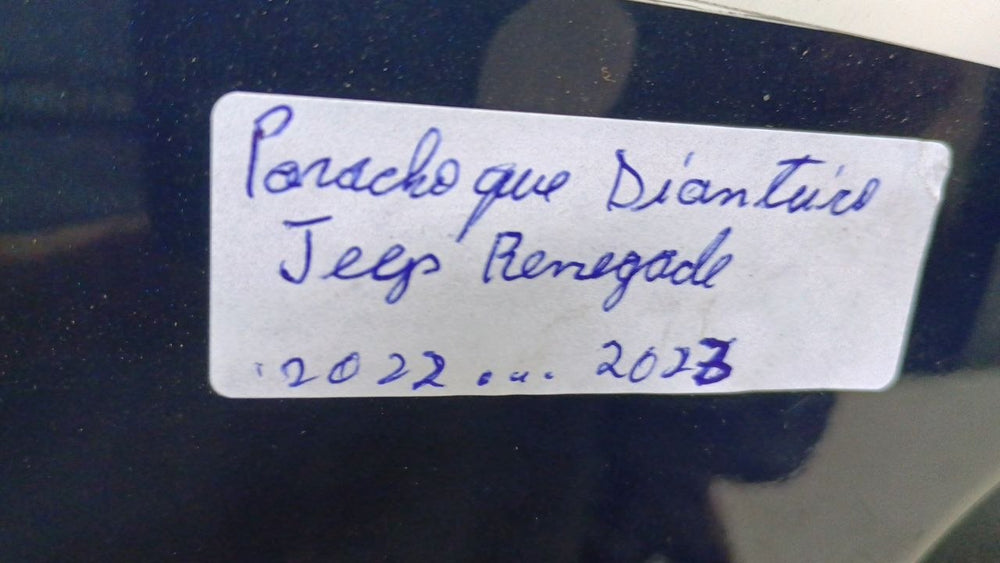 Parachoque Dianteiro
Jeep Renegade
2022 ... 2023